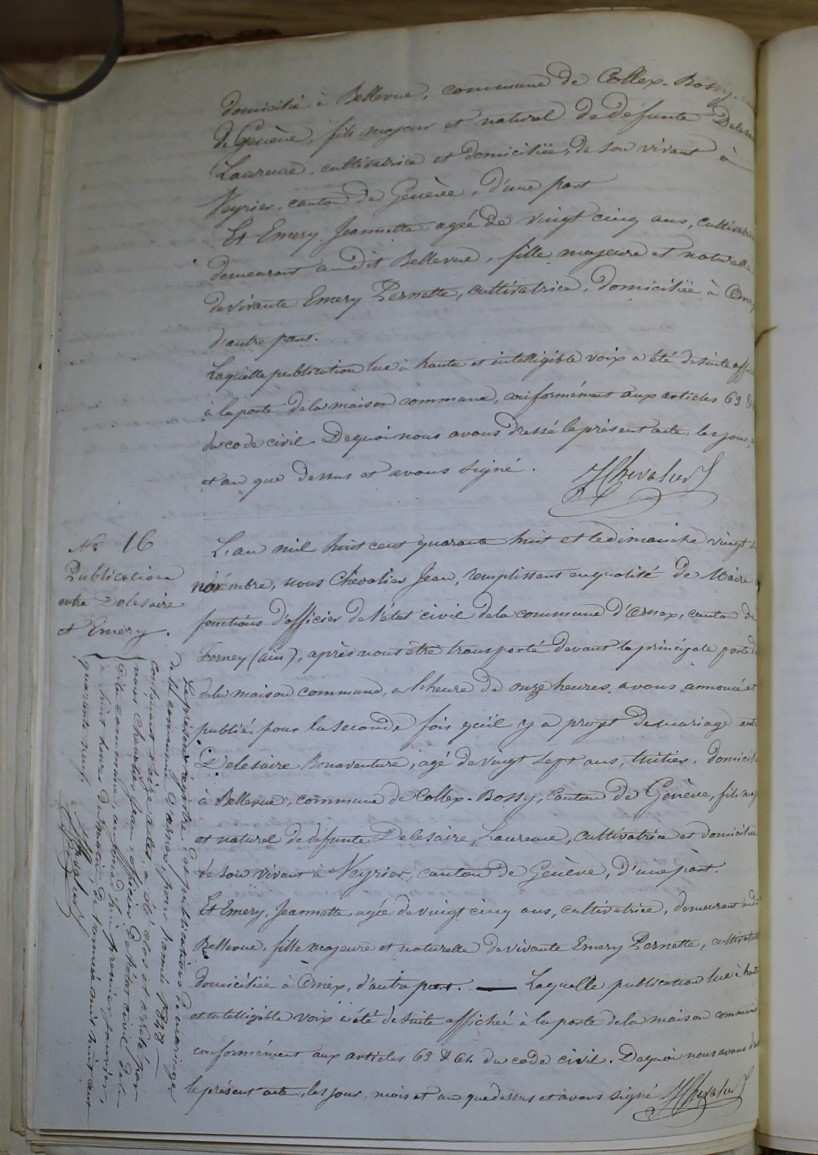 domicilié à Bellevue, commune de Collex-Bossy,
de Genève, fils majeur et naturel de défunte
Laurence, cultivatrice et domiciliée, de son vivant à
Veyrier, canton de Genève, d'une part
Et Emery Jeannette agée de vingt cinq ans,
demeurant audit Bellevue, fille majeure et naturelle
de vivante Emery Pernette, cultivatrice, domiciliée à
d'autre part.
Laquelle publication lue à haute et intelligible voix a été de suite
à la porte de la maison commune, conformément aux articles 63 &
du code civil. De quoi nous avons dressé le présent acte les jour,
et an que dessus et avons signé. Chevalier J
No 16
Publication
entre Delesaire
et Emery.
L'an mil huit cent quarante huit et le dimanche vingt
novembre, nous Chevalier Jean, remplissant en qualité de Maire
fonctions d'officier de l'état civil de la commune d'Ornex, canton de
Ferney (ain), après nous être transporté devant la principale porte
de la maison commune, à l'heure de onze heures avons annoncé et
publié pour la seconde fois qu'il y a projet de mariage
Delesaire Bonaventure, agé de vingt sept ans, domicilié
à Bellevue, commune de Collex-Bossy, canton de Genève, fils
et naturel de défunte Delesaire, Laurence, cultivatrice et domiciliée
de son vivant à Veyrier, canton de Genève, d'une part.
Et Emery, Jeannette, agée de vingt cinq ans, cultivatrice, demeurant
Bellevue, fille majeure et naturelle de vivante Emery Pernette,
domiciliée à Ornex, d'autre part. — Laquelle publication lue à haute
et intelligible voix a été de suite affichée à la porte de la maison commune
conformément aux articles 63 & 64 du code civil. De quoi nous avons
le présent acte, les jour, mois et an que dessus et avons signé Chevalier J
Le présent registre des publications de mariage
de la commune d'Ornex pour l'année 1848
contenant seize actes a été clos et arrêté par
nous Chevalier Jean officier de l'état civil de la
dite commune, aujourd'hui premier janvier,
à huit heures du matin de l'année mil huit cent
quarante neuf. Chevalier J